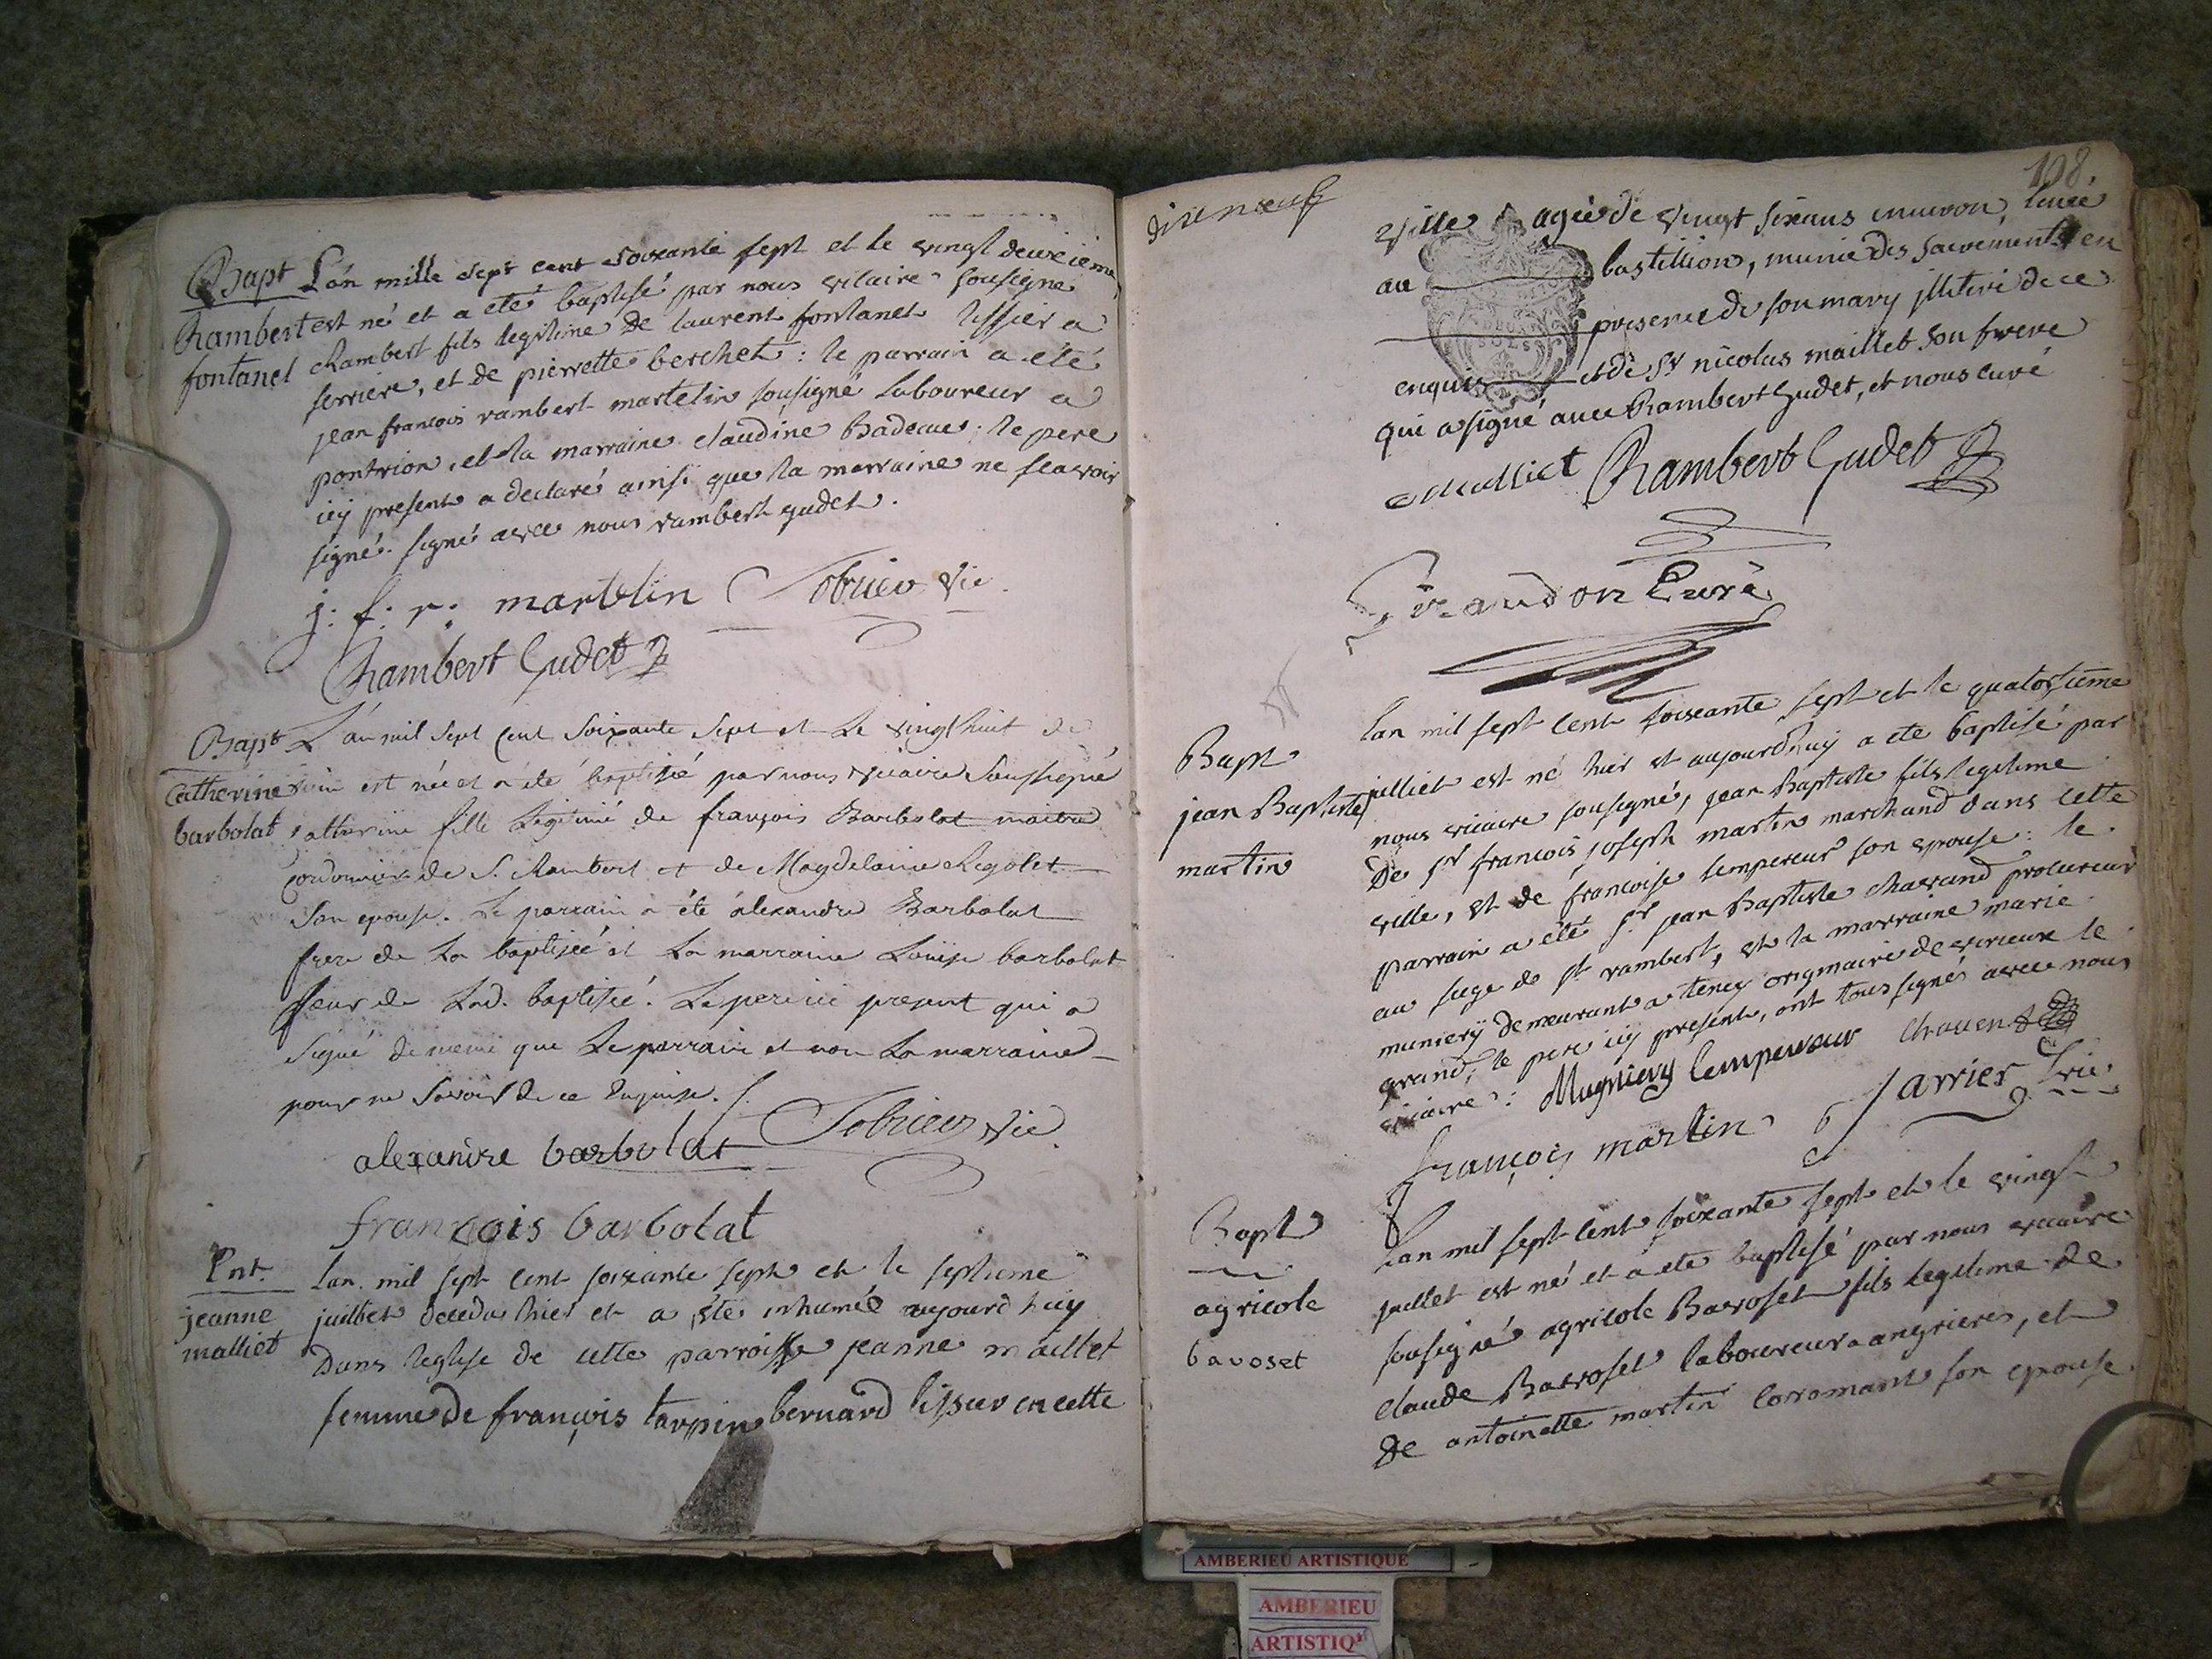 Bapt L'an mille sept cent soixante sept et le vingt deuxieme
Rambert est né et a eté baptisé par nous vicaire sousigne
fontanel rambert fils legitime de laurent fontanel tissier a
serriere, et de pierrette berchet : le parrain a été
jean francois rambert martelin sousigné laboureur a
pontrion, et la marraine claudine Badeaux ; le pere
icy present a declaré ainsi que la marraine ne scavoir
signé. signé avec nous rambert gudet.
j: f: r: martelin vic
Rambert Gudet
Bapt L'an mil sept cent soixante sept et le vingt huit de
Catherine juin est née et a été baptisée par nous vicaire soussigné
barbolat catherine fille legitime de françois Barbolat maitre
cordonnier de S. Rambert et de Magdelaine Rigolet
son epouse. Le parrain a été alexandre Barbolat
frere de la baptisée et la marraine Louise barbolat
soeur de lad. baptisée. Le pere ici present qui a
signé de meme que le parrain et non la marraine
pour ne savoir de ce enquise.
alexandre barbolat vic
françois barbolat
Ent. Lan mil sept cent soixante sept et le septieme
jeanne juilliet decedu hier et a été inhumée aujourd'huy
malliet Dans leglise de cette parroisse jeanne maillet
femme de françois tarpin bernard tissier en cette
dixneuf
108.
ville agée de vingt sixans environ, lurée
au bastillion, munie des sacrements en
presence de son mary illiteré de ce
enquis et de Sr nicolas maillet son frere
qui a signé avec Rambert Gudet, et nous curé
Malliet Rambert Gudet
Curé
Bapt Lan mil sept cent soixante sept et le quatorsieme
jean Baptiste juilliet est né hier et aujourdhuy a ete baptisé par
martin nous vicaire sousigné, jean Baptiste fils legitime
De sr francois joseph martin marchand dans cette
ville, et de francoise lempereur son epouse : le
parrain a été sr jean Baptiste chavend procureur
au siege de st rambert, et la marraine marie
muniery demeurant a tenay originaire de virieux le
grand, le pere icy present, ont tous signés avec nous
vicaire : Mugniery lempereur chavent
françois martin Jarrier vic.
Bapt Lan mil sept cent soixante sept et le vingt
juillet est né et a ete baptisé par nous vicaire
agricole sousigné agricole Bavoset fils legitime de
bavoset claude Bavoset laboureur a angrieres, et
de antoinette martin corromant son epouse
AMBERIEU ARTISTIQUE
AMBERIEU
ARTISTIQ